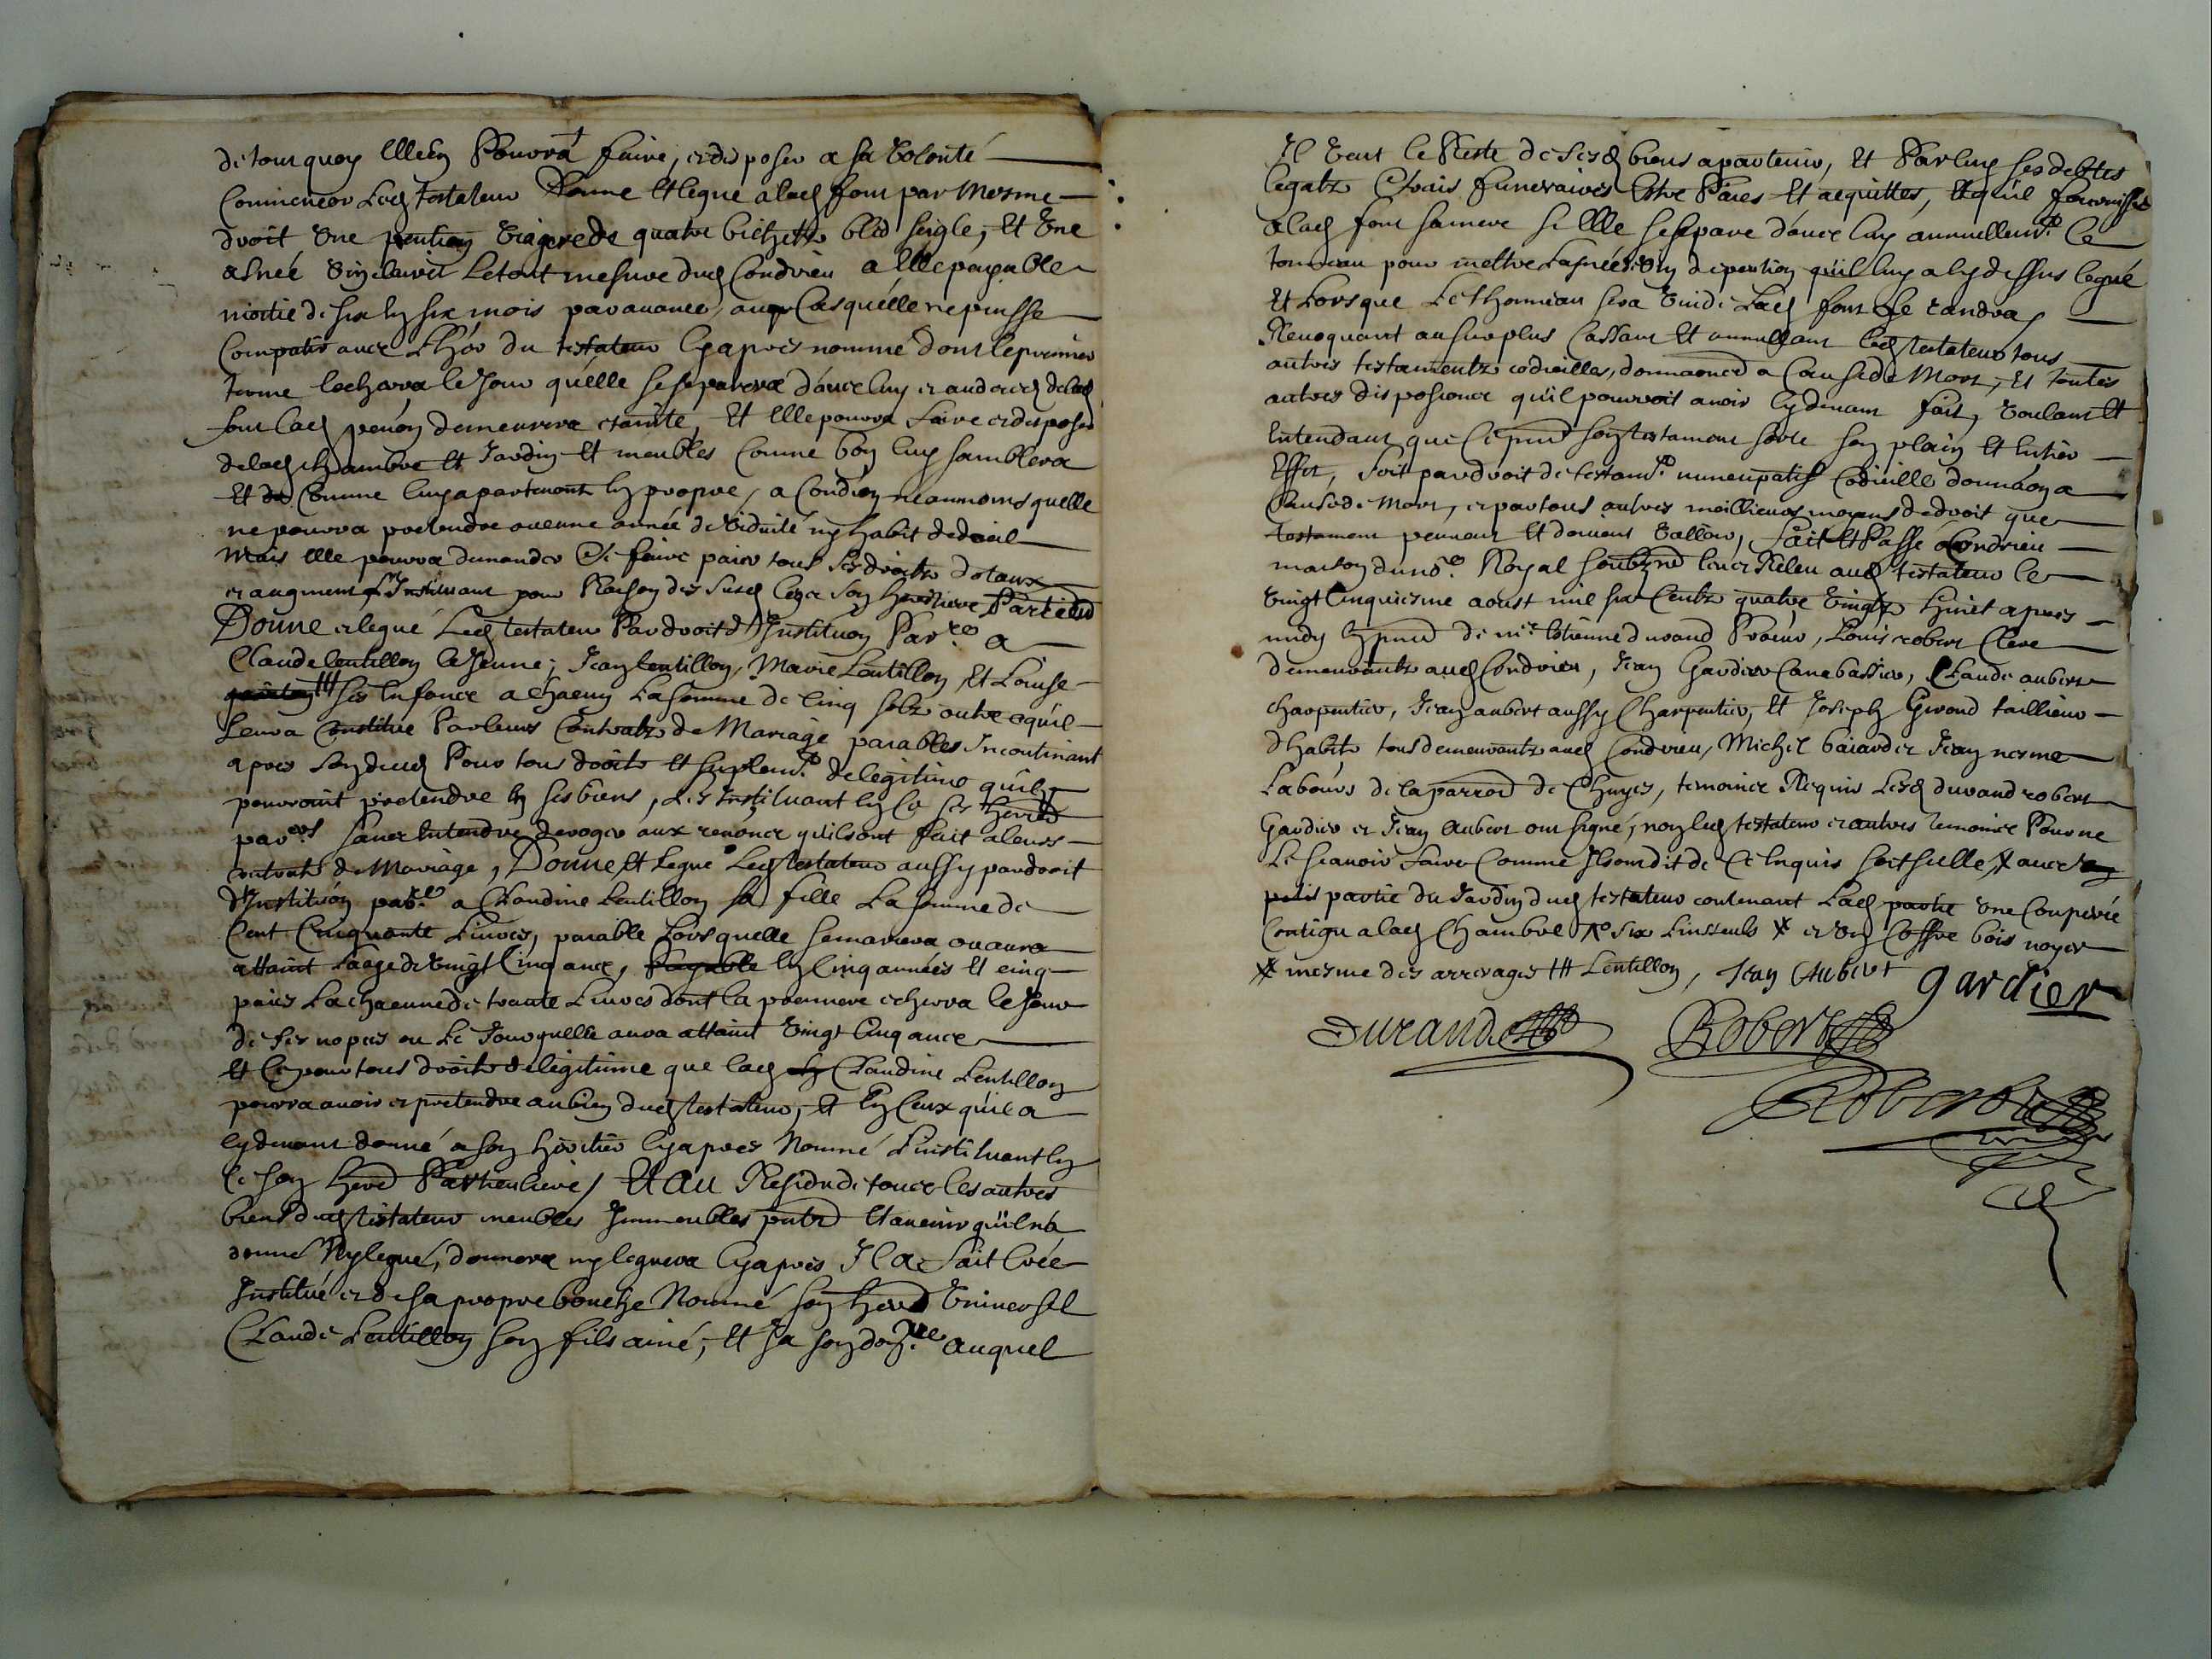 de tout quoy elle en Pourra faire, et disposer a sa volonté
Comme ledit testateur Donne et legue a lad font par mesme
droit Une pention viagere de quatre bichetts bled seigle, et Une
asnée vin clairet le tout mesure dud Condrieu a elle payable
moitie de six en six mois par avance, au Cas quelle ne puisse
Compatir avec Lher du testateur cy apres nommé dont le premier
terme echerra le Jour quelle se separera d'avec luy et au deced de lad
font lad penon demeurera etainte, Et Elle pourra faire et disposer
de lad chambre et Jardin et meubles Comme bon luy samblera
Et Comme luy apartenant en propre, a Condion neanmoins quelle
ne pourra pretendre aucune année de viduité ny habit de dueil
Mais elle pourra demander et se faire paier tous ses droits dotaux
et augment L'Instituant pour Raison des susd legs son heritiere Particu
Donne et legue Led testateur Par droit d'Instituon Par.re a
Claude Lentillon le Jeune, Jean Lentillon, Marie Lentillon, Et Louise
ses enfance a chacun La somme de cinq solz outre ce quil
leur a Constitue Par leurs Contratz de Mariage paiables Incontinant
apres son deced Pour tous droits et suplemt de legitime quilz
pourroint pretendre en ses biens, Les Instituant en ce ses herers
par.ers sans Entendre deroger aux renonce quils ont fait a leurs
contrats de Mariage, Donne et Legue Led testateur aussy par droit
d'Instituon par.re a Claudine Lentillon sa fille La somme de
Cent Cinquante Livres, paiable Lors quelle se mariera ou aura
attaint l'aage de vingt Cinq ance, en Cinq années et cinq
paies La chacune de trante Livres dont la premiere echerra le Jour
de ses nopces ou Le Jour quelle aura attaint vingt Cinq ance
Et Ce pour tous droits de legitime que lad Claudine Lentillon
pourra avoir et pretendre au bien dud testateur, et En Ceux quil a
cy devant donné a son heritier cy apres Nommé L'instituant en
ce son herre Particuliere, Et au Residu de touce les autres
biens dud testateur meubles Immeubles pnts Et avenir quil n'a
donné Ny legué, donnera ny leguera cy apres Il a fait Crée
Institué et de sa propre bouche Nommé son herer Universel
Claude Lentillon son fils ainé, et Ja son don.re auquel
Il veut le Reste de sesd biens apartenir, Et Par luy ses debtes
legatz frais funeraires Estre Paies Et acquittes, Et quil fournisse
a lad font sa mere si Elle se separe d'avec luy annuellemt. Ce
tonneau pour mettre Lasnée vin de pention quil luy a cy dessus legué
Et Lors que Le thonneau sera vuide Lad font le randra
Revoquant au surplus Cassant Et annullant led testateur tous
autres testamentz codicilles, donnaoncs a Cause de Mort, et toutes
autres disposionce quil pourroit avoir cy devant fait, voulant Et
Entendant que Ce pnt son testament sorte son plain Et Entier
Effet, soit par droit de testamt. nuncupatif Codicille donnaon a
Cause de Mort, et par tous autres meillieurs moyens de droit que
testament peuvent Et doivent valloir, fait Et Passé a Condrieu
maison du no.re Royal soubzné leu et Releu aud testateur le
vingt Cinquiesme aoust mil six Centz quatre vingtz huict apres
midy En pnce de m.e Estienne durand Praticn, Louis robert Clerc
demeurantz aud Condrieu, Jean Gardier Canebassier, Claude aubert
charpentier, Jean aubert aussy Charpentier, Et Joseph Girond taillieur
d'habits tous demeurantz aud Condrieu, Michel baiard et Jean nesme
Labours de la parroe de Chuyes, temoince Requis Lesd durand robert
Gardier et Jean Aubert ont signé, non led testateur et autres temoince Pour ne
Le scavoir faire Comme Ils ont dit de Ce Enquis avec
partie du Jardin dud testateur contenant Lad partie Une Couperée
Contigu a lad Chambre six Linsseuls et Un Coffre bois noyer
mesme des arrerages Lentillon, Jean Aubert gardier
Durand Robert
Robert